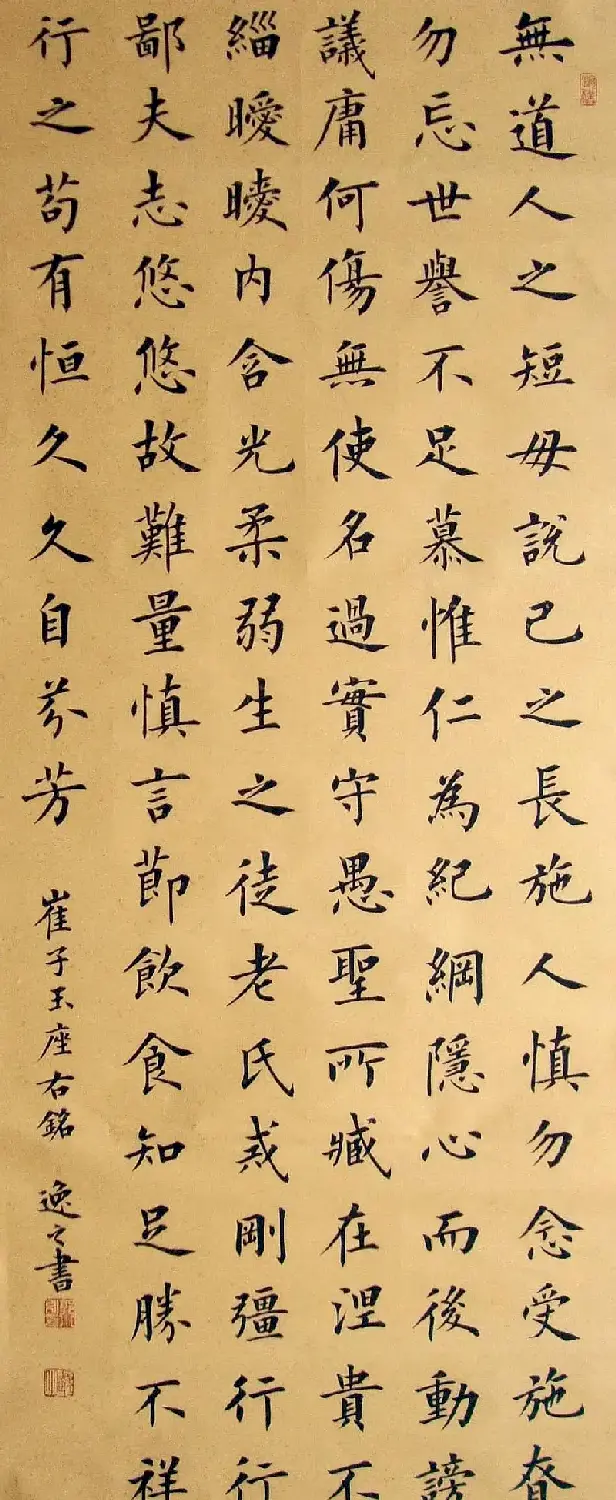 無道人之短毋說己之長施人慎勿念受施眘
勿忘世譽不足慕惟仁為紀綱隱心而後動謗
議庸何傷無使名過實守愚聖所臧在涅貴不
緇曖曖內含光柔弱生之徒老氏戒剛彊行行
鄙夫志悠悠故難量慎言節飲食知足勝不祥
行之苟有恒久久自芬芳
崔子玉座右銘 逸之書